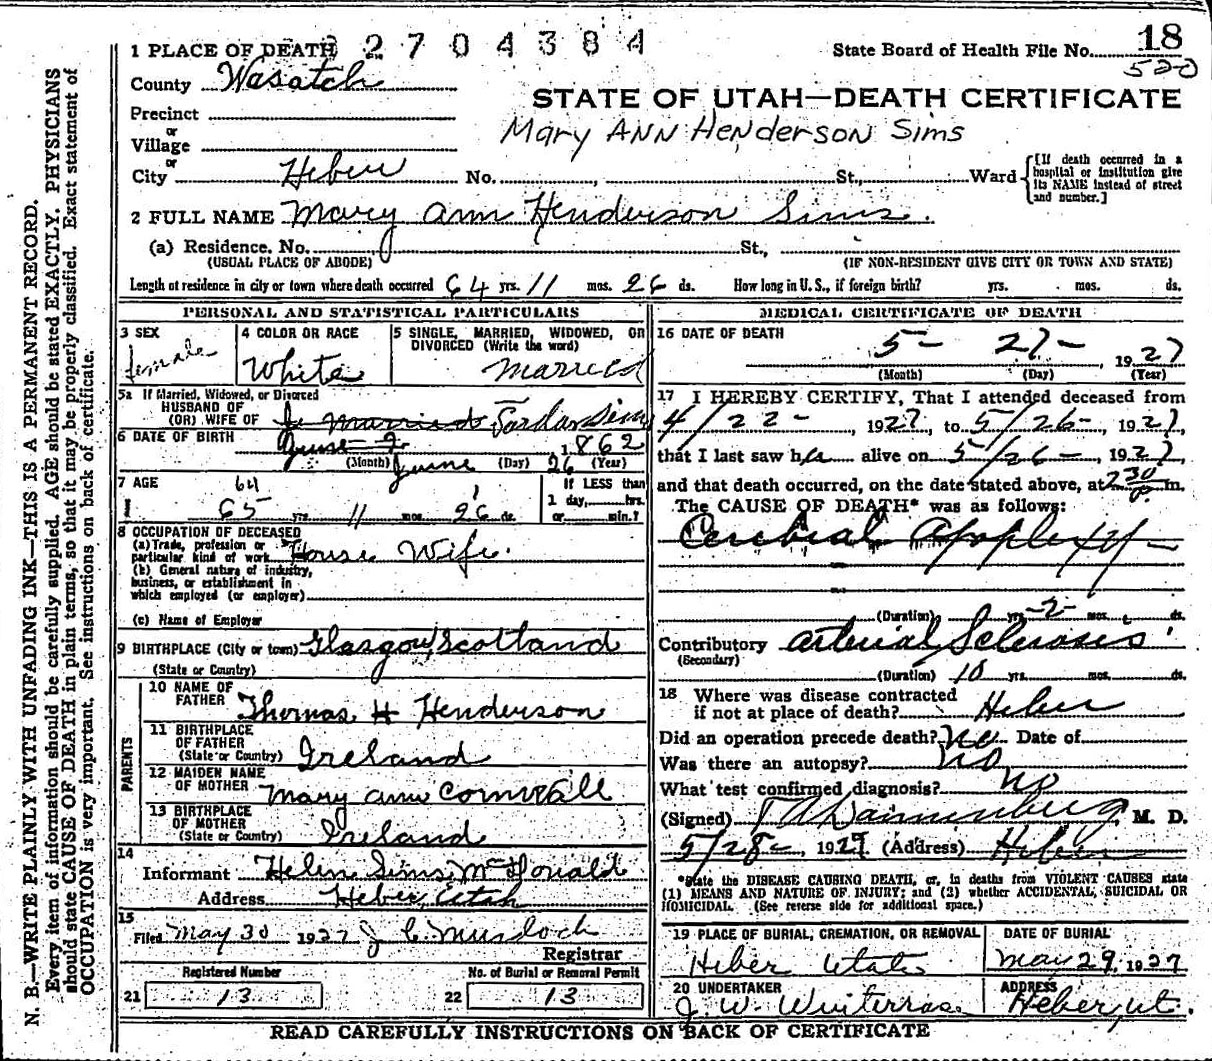 1 PLACE OF DEATH 2704384 State Board of Health File No. 18
520
County Wasatch
STATE OF UTAH—DEATH CERTIFICATE
Precinct
Mary ANN Henderson Sims
or
Village
or
City Heber No. , St., Ward {[If death occurred in a hospital or institution give its NAME instead of street and number.]
2 FULL NAME Mary Ann Henderson Sims.
(a) Residence. No. St.,
(USUAL PLACE OF ABODE) (IF NON-RESIDENT GIVE CITY OR TOWN AND STATE)
Length of residence in city or town where death occurred 64 yrs. 11 mos. 26 ds. How long in U. S., if foreign birth? yrs. mos. ds.
PERSONAL AND STATISTICAL PARTICULARS
3 SEX
female
4 COLOR OR RACE
White
5 SINGLE, MARRIED, WIDOWED, OR
DIVORCED (Write the word)
Married
5a If Married, Widowed, or Divorced
HUSBAND OF
(OR) WIFE OF Married Jordan Sims
6 DATE OF BIRTH June 2 1862
(Month) June (Day) 26 (Year)
7 AGE 64
65 yrs. 11 mos. 26 ds.
If LESS than
1 day, hrs.
or min.?
8 OCCUPATION OF DECEASED
(a) Trade, profession or
particular kind of work House Wife.
(b) General nature of industry,
business, or establishment in
which employed (or employer)
(c) Name of Employer
9 BIRTHPLACE (City or town) Glasgow, Scotland
(State or Country)
PARENTS
10 NAME OF
FATHER Thomas H Henderson
11 BIRTHPLACE
OF FATHER
(State or Country) Ireland
12 MAIDEN NAME
OF MOTHER Mary ann Cornwall
13 BIRTHPLACE
OF MOTHER
(State or Country) Ireland
14
Informant Helen Sims McDonald
Address Heber, Utah
15
Filed May 30 1927 J C Murdoch
Registrar
Registered Number No. of Burial or Removal Permit
21 13 22 13
MEDICAL CERTIFICATE OF DEATH
16 DATE OF DEATH
5- 27- , 1927
(Month) (Day) (Year)
17 I HEREBY CERTIFY, That I attended deceased from
4/22-, 1927, to 5/26-, 1927,
that I last saw her alive on 5/26-, 1927
and that death occurred, on the date stated above, at 2 30 P. m.
The CAUSE OF DEATH* was as follows:
Cerebral Apoplexy-
(Duration) yrs. -2- mos. ds.
Contributory Arterial Sclerosis
(Secondary)
(Duration) 10 yrs. mos. ds.
18 Where was disease contracted
if not at place of death? Heber
Did an operation precede death? No Date of
Was there an autopsy? NO
What test confirmed diagnosis? no
(Signed) M. D.
5/28-, 1927. (Address) Heber
*State the DISEASE CAUSING DEATH, or, in deaths from VIOLENT CAUSES state
(1) MEANS AND NATURE OF INJURY; and (2) whether ACCIDENTAL, SUICIDAL OR
HOMICIDAL. (See reverse side for additional space.)
19 PLACE OF BURIAL, CREMATION, OR REMOVAL
Heber Utah
DATE OF BURIAL
May 29, 1927
20 UNDERTAKER
J. W. Winterrose
ADDRESS
Heber, Ut.
READ CAREFULLY INSTRUCTIONS ON BACK OF CERTIFICATE
N. B.—WRITE PLAINLY WITH UNFADING INK—THIS IS A PERMANENT RECORD.
Every item of information should be carefully supplied. AGE should be stated EXACTLY. PHYSICIANS
should state CAUSE OF DEATH in plain terms, so that it may be properly classified. Exact statement of
OCCUPATION is very important. See instructions on back of certificate.